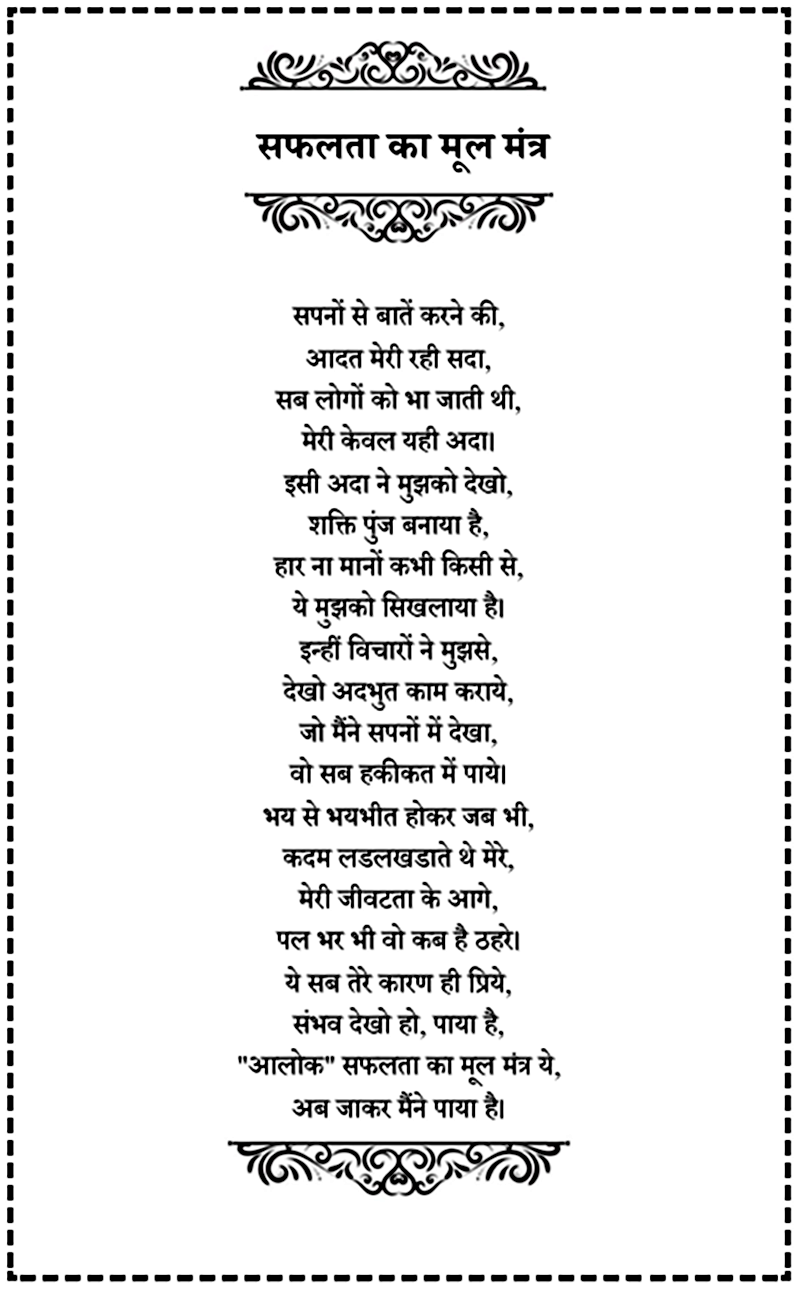 सफलता का मूल मंत्र
सपनों से बातें करने की,
आदत मेरी रही सदा,
सब लोगों को भा जाती थी,
मेरी केवल यही अदा।
इसी अदा ने मुझको देखो,
शक्ति पुंज बनाया है,
हार ना मानों कभी किसी से,
ये मुझको सिखलाया है।
इन्हीं विचारों ने मुझसे,
देखो अदभुत काम कराये,
जो मैंने सपनों में देखा,
वो सब हकीकत में पाये।
भय से भयभीत होकर जब भी,
कदम लडलखडाते थे मेरे,
मेरी जीवटता के आगे,
पल भर भी वो कब है ठहरे।
ये सब तेरे कारण ही प्रिये,
संभव देखो हो, पाया है,
"आलोक" सफलता का मूल मंत्र ये,
अब जाकर मैंने पाया है।